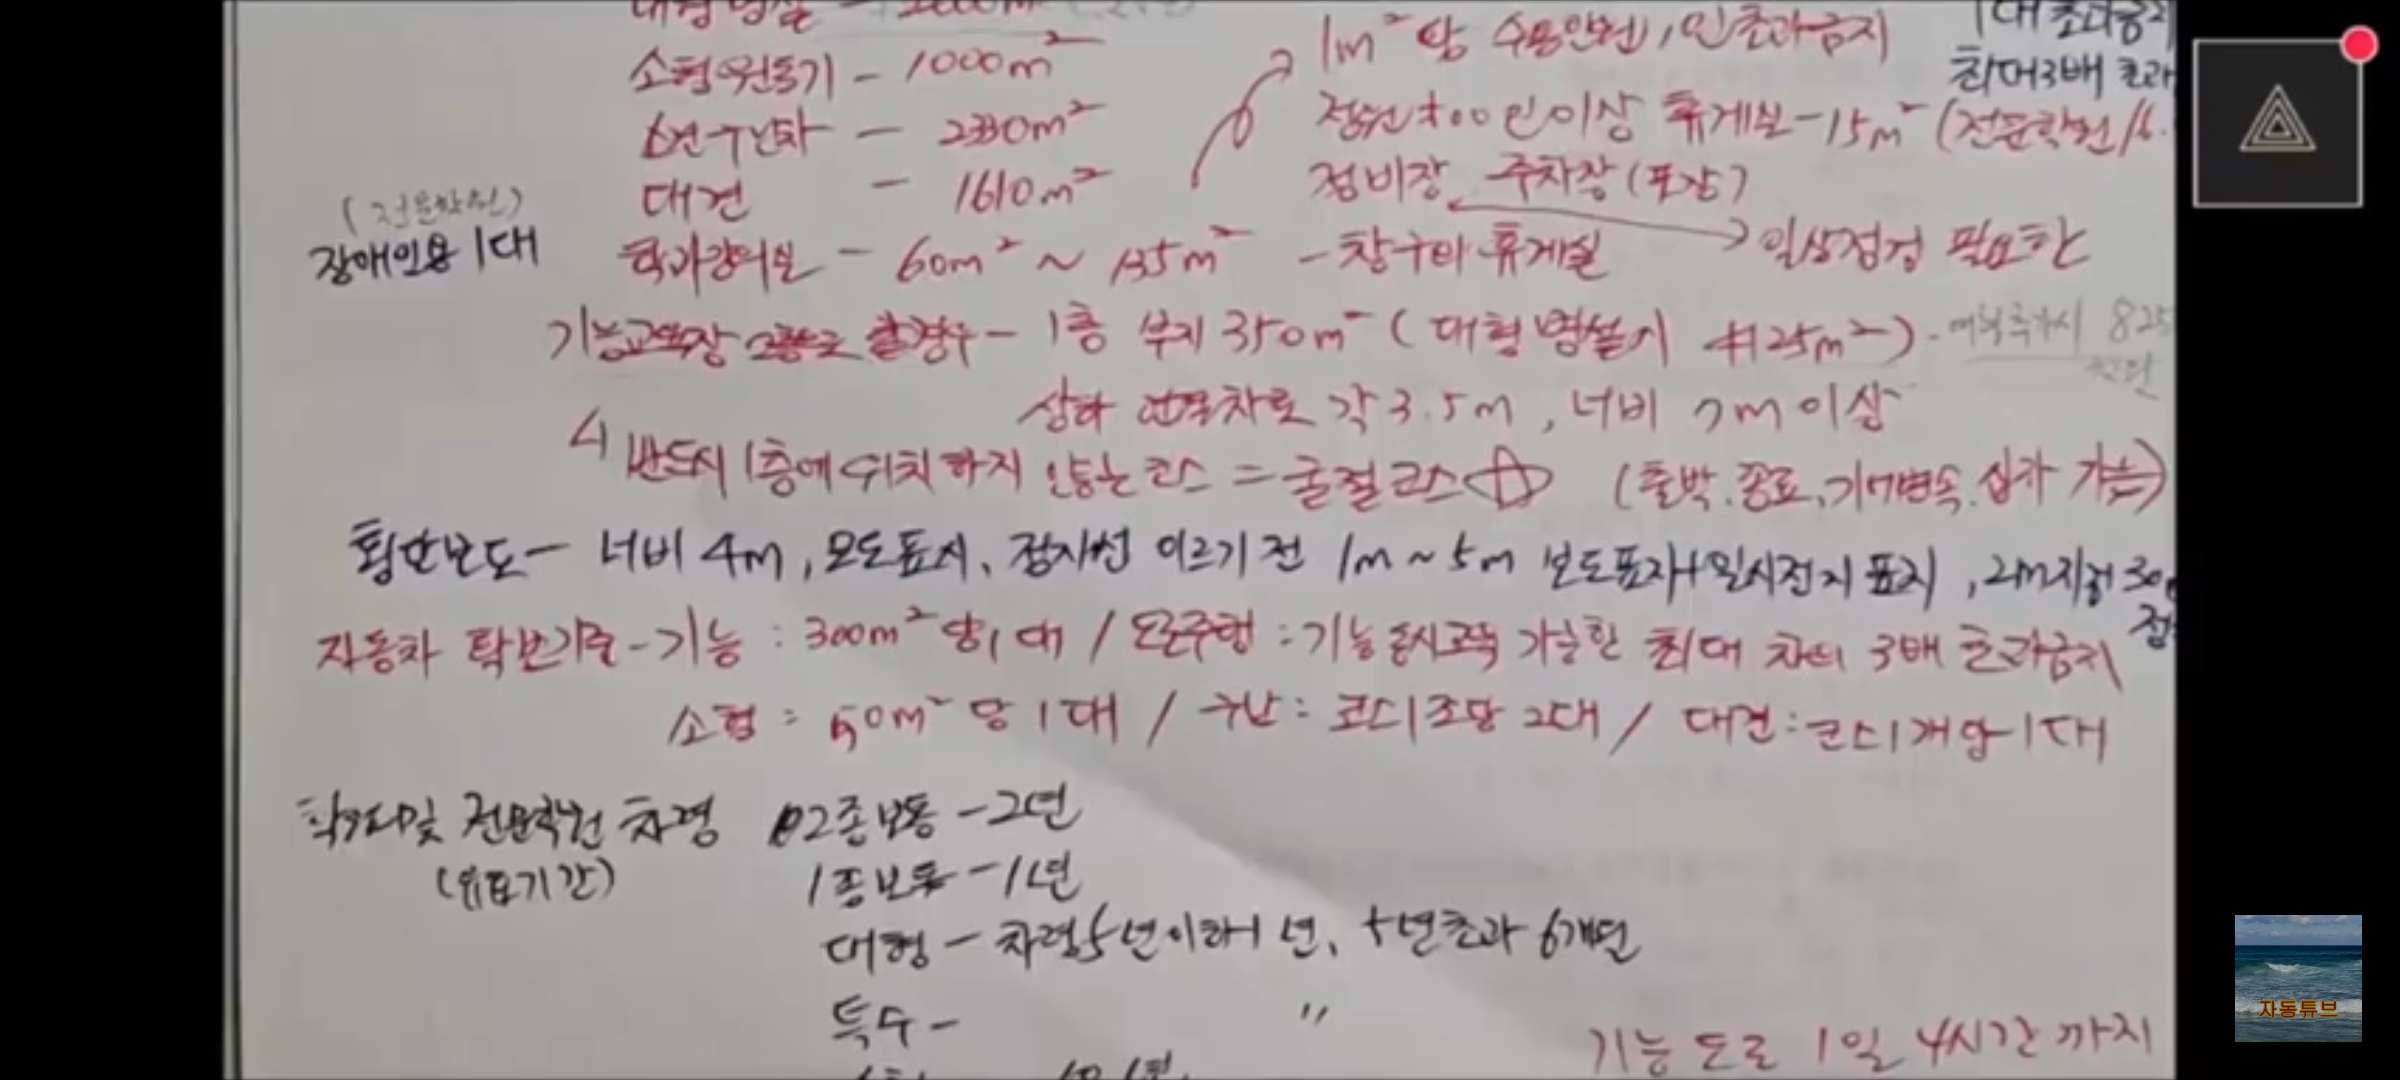 대형 병설 - 2000m²
소형, 원동기 - 1000m²
1m²당 수용인원 1인 초과금지
1대 초과금지
최대 3배 초과
구난차 - 2330m²
정원 100인 이상 휴게실 - 15m² (전문학원
대견 - 1610m²
정비장 주차장(포장)
(전문학원)
장애인용 1대
학과강의실 - 60m² ~ 135m² - 창구비 휴게실
일상점검 필요한
기능교육장 2층으로 할경우 - 1층 부지 350m² (대형 병설시 4125m²)
825
상하 연결차로 각 3.5m, 너비 7m 이상
반드시 1층에 위치하지 않는 코스 = 굴절코스 ☆ (출발.종료.기어변속.십자 가능)
횡단보도 - 너비 4m, 보도표시, 정지선 이르기 전 1m ~ 5m 보도표지+일시정지 표지, 2m지점 30
자동차 확보기준 - 기능 : 300m²당 1대 / 도로주행 : 기능 동시교육 가능한 최대 차의 3배 초과금지
소형 : 50m²당 1대 / 구난 : 코스1조당 2대 / 대견 : 코스1개당 1대
학원 및 전문학원 차령 2종보통 - 2년
(유효기간) 1종보통 - 1년
대형 - 차령 5년이하 1년, 5년초과 6개월
특수 - 〃
기능 도로 1일 4시간 까지
자동튜브